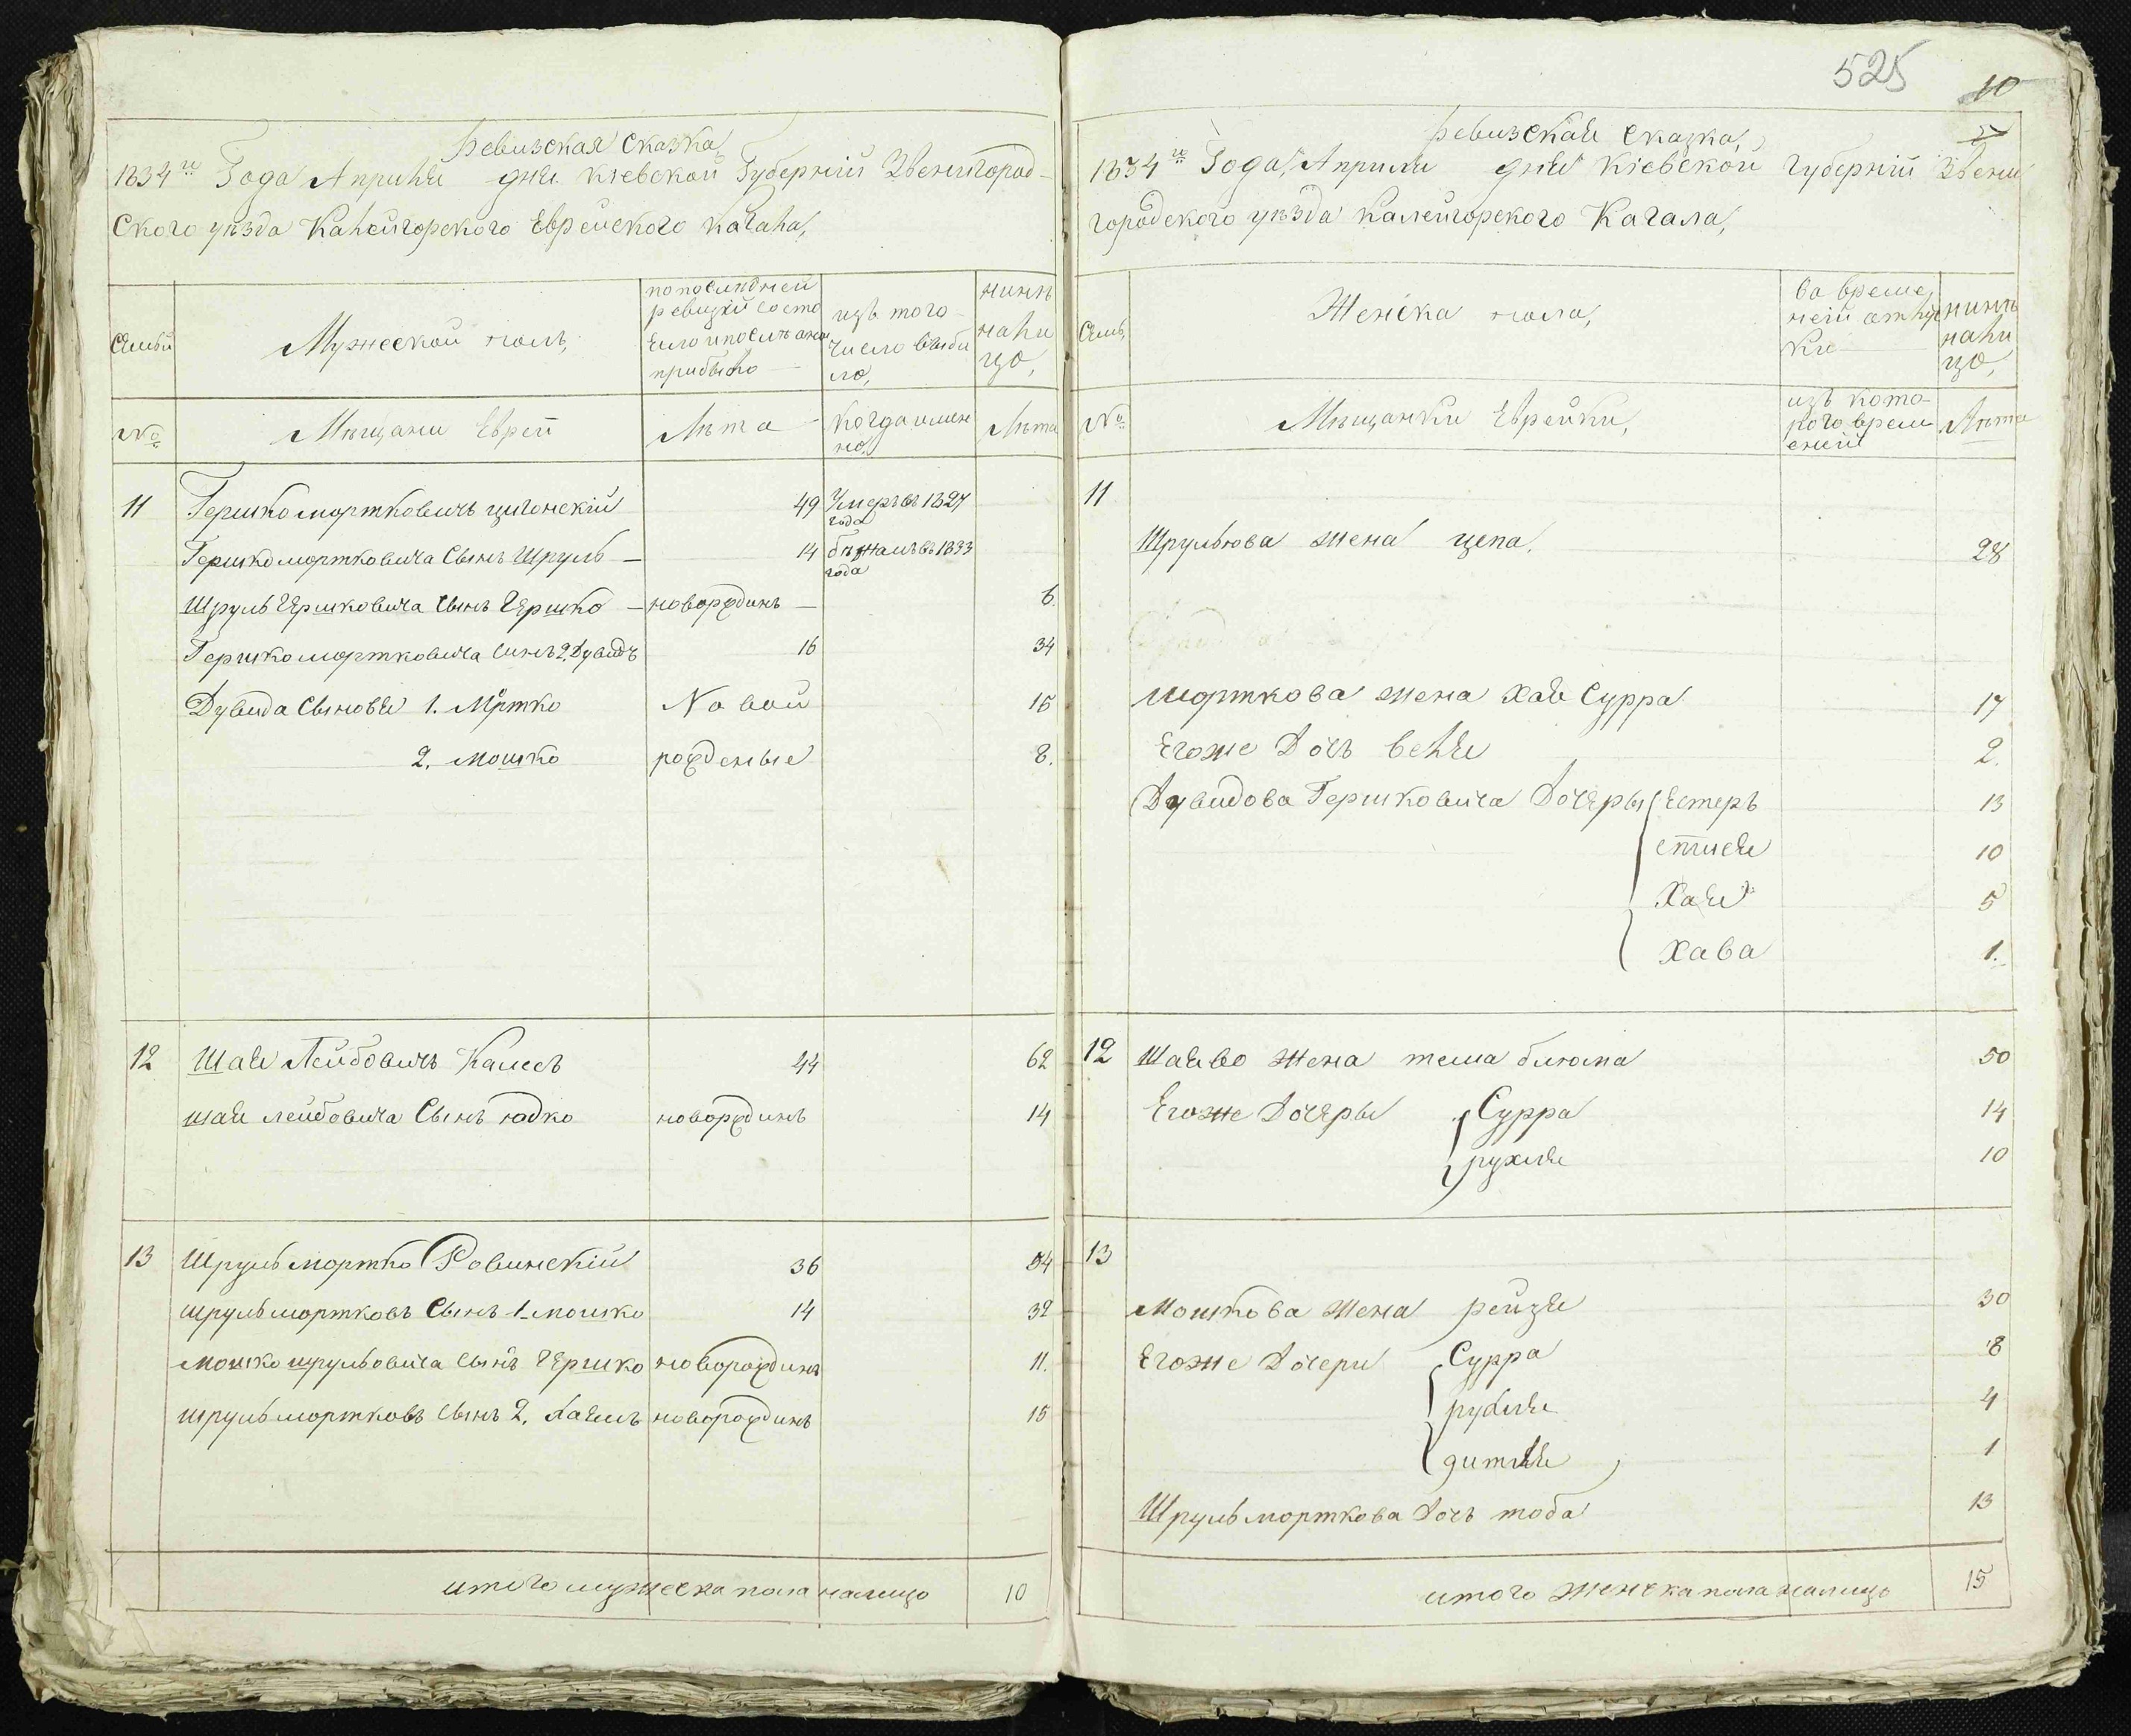 Ревизская Сказка,
1834го Года Априля дня Кіевской Губерніи Звенигород-
ского уѣзда Калейгорского Еврейского Кагала,
Семьи
Мужеской полъ,
по послидней
ревизіи состо
яло и после оной
прибыло
изъ того
число выбы
ло,
нинѣ
нали
цо,
№
Мѣщани Евреи
Лѣта
когда имен
но,
Лѣта
11 Гершко мортковичъ цигонскій 49 Умеръ въ 1827
года
Гершко мортковича Сынъ Шруль — 14 бѣжалъ въ 1833
года
Шруль Гершковича Сынъ Гершко — новорожденъ — 6.
Гершко мортковича Синъ 2. Дувидъ 16 34
Дувида Сыновья 1. Мортко Новой 15
2. Мошко рожденые 8.
12 Шая Лейбовичъ Камесъ 44 62
шая лейбовича Сынъ юдко новорождинъ 14
13 Шруль мортко Ровинскій 36 54
шруль мортковъ Сынъ 1 мошко 14 32
мошко шрульовича Сынъ Гершко новорождинъ 11.
шруль мортковъ Сынъ 2. Хаимъ новорождинъ 15
итого мужеска пола налицо 10
525
10
5
Ревизская Сказка,
1834го Года, Априля дня Кіевской Губерніи Звени
городского уѣзда Калейгорского Кагала,
Семь,
Женска пола,
во време
неій отлу
ки
нинѣ
нали
цо,
№
Мѣщанки Еврейки,
изъ кото
рого врем
ениій
Лѣта
11
Шрульова жена ципа, 28
морткова жена Хая Сурра 17
Егоже Дочъ беля 2.
Дувидова Гершковича Дочеры Естеръ 13
10
Хая 5
Хава 1.
12 Шаиво жена тема блюма 50
Егоже Дочеры Сурра 14
рухля 10
13
Мошкова жена рейзя 30
Егоже Дочери Сурра 8
рухля 4
дитля 1
Шруль морткова Дочъ тоба 13
итого женска пола налицо 15